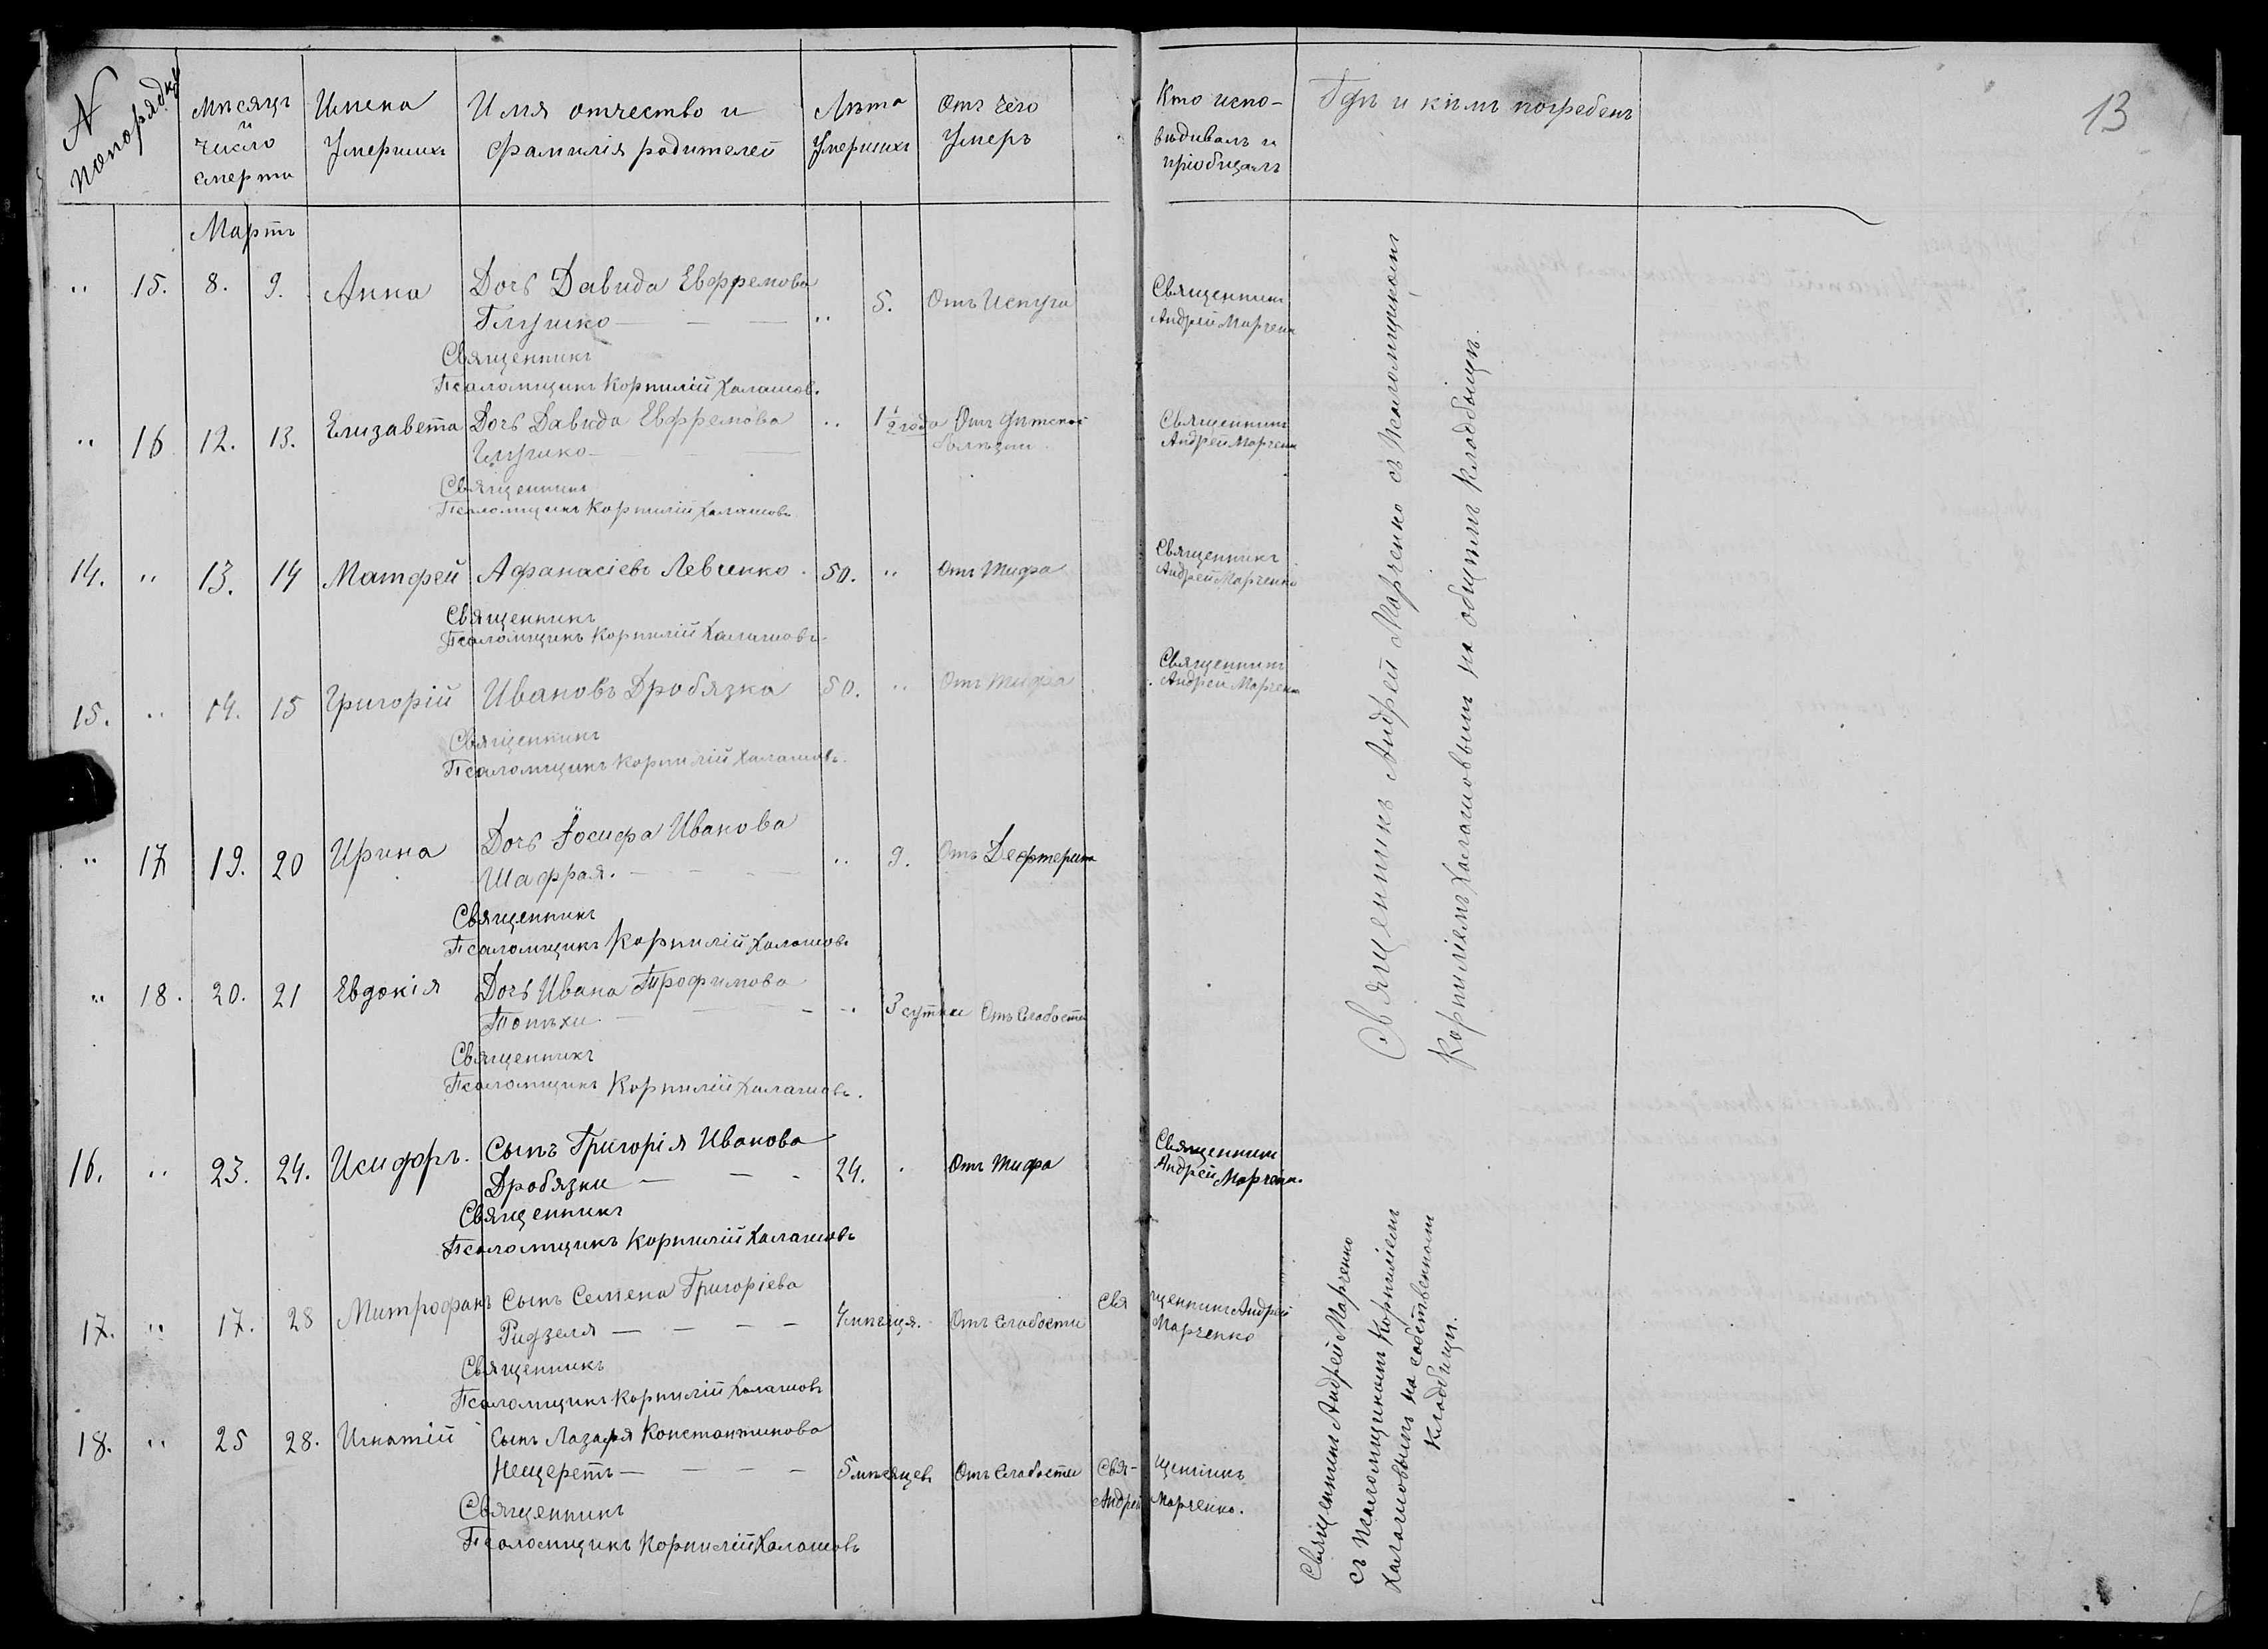 13
№ попорядку
Мѣсяцъ и число смерти
Имена Умершихъ
Имя отчество и фамилія родителей
Лѣта Умершихъ
Отъ чего Умеръ
Кто испо-
вѣдивалъ и
пріобщалъ
Гдѣ и кѣмъ погребенъ
Мартъ
" 15. 8. 9. Анна Дочь Давида Евфремова
Глушко — — — " 5. Отъ Испуга
Священникъ
Андрей Марченко
Священникъ
Псаломщикъ Корнилій Халашовъ.
" 16 12. 13. Елизавета Дочь Давида Евфремова " 1 1/2 года Отъ дѣтской
Глушко — болѣзни
Священникъ
Андрей Марченко
Священникъ
Псаломщикъ Корнилій Халашовъ
14. " 13. 14 Матфей Афанасіевъ Левченко. 50. " Отъ Тифа
Священникъ
Андрей Марченко
Священникъ
Псаломщикъ Корнилій Халашовъ
15. " 14. 15 Григорій Ивановъ Дробязка 50. " Отъ Тифа
Священникъ
Андрей Марченко
Священникъ
Псаломщикъ Корнилій Халашовъ.
" 17 19. 20 Ирина Дочь Іосифа Иванова
Шафрая. — — — " 9. Отъ Дефтерита
Священникъ
Псаломщикъ Корнилій Халашовъ
" 18. 20. 21 Евдокія Дочь Ивана Трофимова
— — " 3 сутки Отъ Слабости
Священникъ
Псаломщикъ Корнилій Халашовъ.
16. " 23. 24. Исидоръ. Сынъ Григорія Иванова
Дробязки — — - 24. " Отъ Тифа
Священникъ
Андрей Марченко.
Священникъ
Псаломщикъ Корнилій Халашовъ
17. " 17. 28 Митрофанъ Сынъ Семена Григоріева
Ридзеля — — — — мѣсяца. Отъ Слабости
Священникъ Андрей
Марченко
Священникъ
Псаломщикъ Корнилій Халашовъ
18. " 25 28. Игнатій Сынъ Лазаря Константинова
Нещеретъ — — — — 5 мѣсяцевъ Отъ Слабости
Свя- щенникъ
Андрей Марченко.
Священникъ
Псаломщикъ Корнилій Халашовъ
Священникъ Андрей Марченко съ Псаломщикомъ
Корниліемъ Халашовымъ на общемъ кладбищѣ.
Священникъ Андрей Марченко
съ Псаломщикомъ Корниліемъ
Халашовымъ на собственномъ
кладбищѣ.